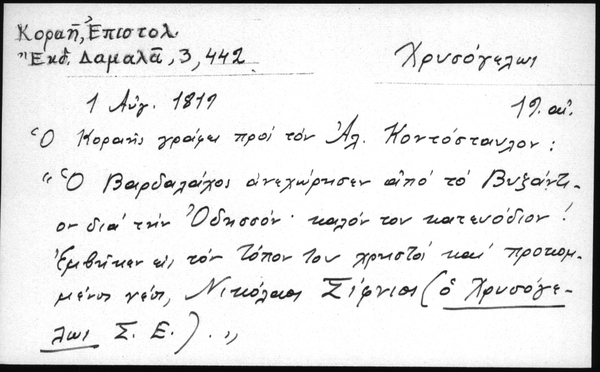 Κοραῆ, Ἐπιστολ.
Ἔκδ. Δαμαλᾶ, 3, 442
Χρυσόγελως
1 Αὐγ. 1819
19. αἰ.
Ὁ Κοραῆς γράφει πρὸς τὸν Ἀλ. Κοντόσταυλον:
"Ὁ Βαρδαλάχος ἀνεχώρησεν ἀπὸ τὸ Βυζάντι-
ον διὰ τὴν Ὀδησσόν· καλόν του κατευόδιον!
Ἐμβῆκεν εἰς τὸν τόπον του χρηστὸς καὶ προκομ-
μένος νέος, Νικόλαος Σίφνιος (ὁ Χρυσόγε-
λως Σ. Ε.).„